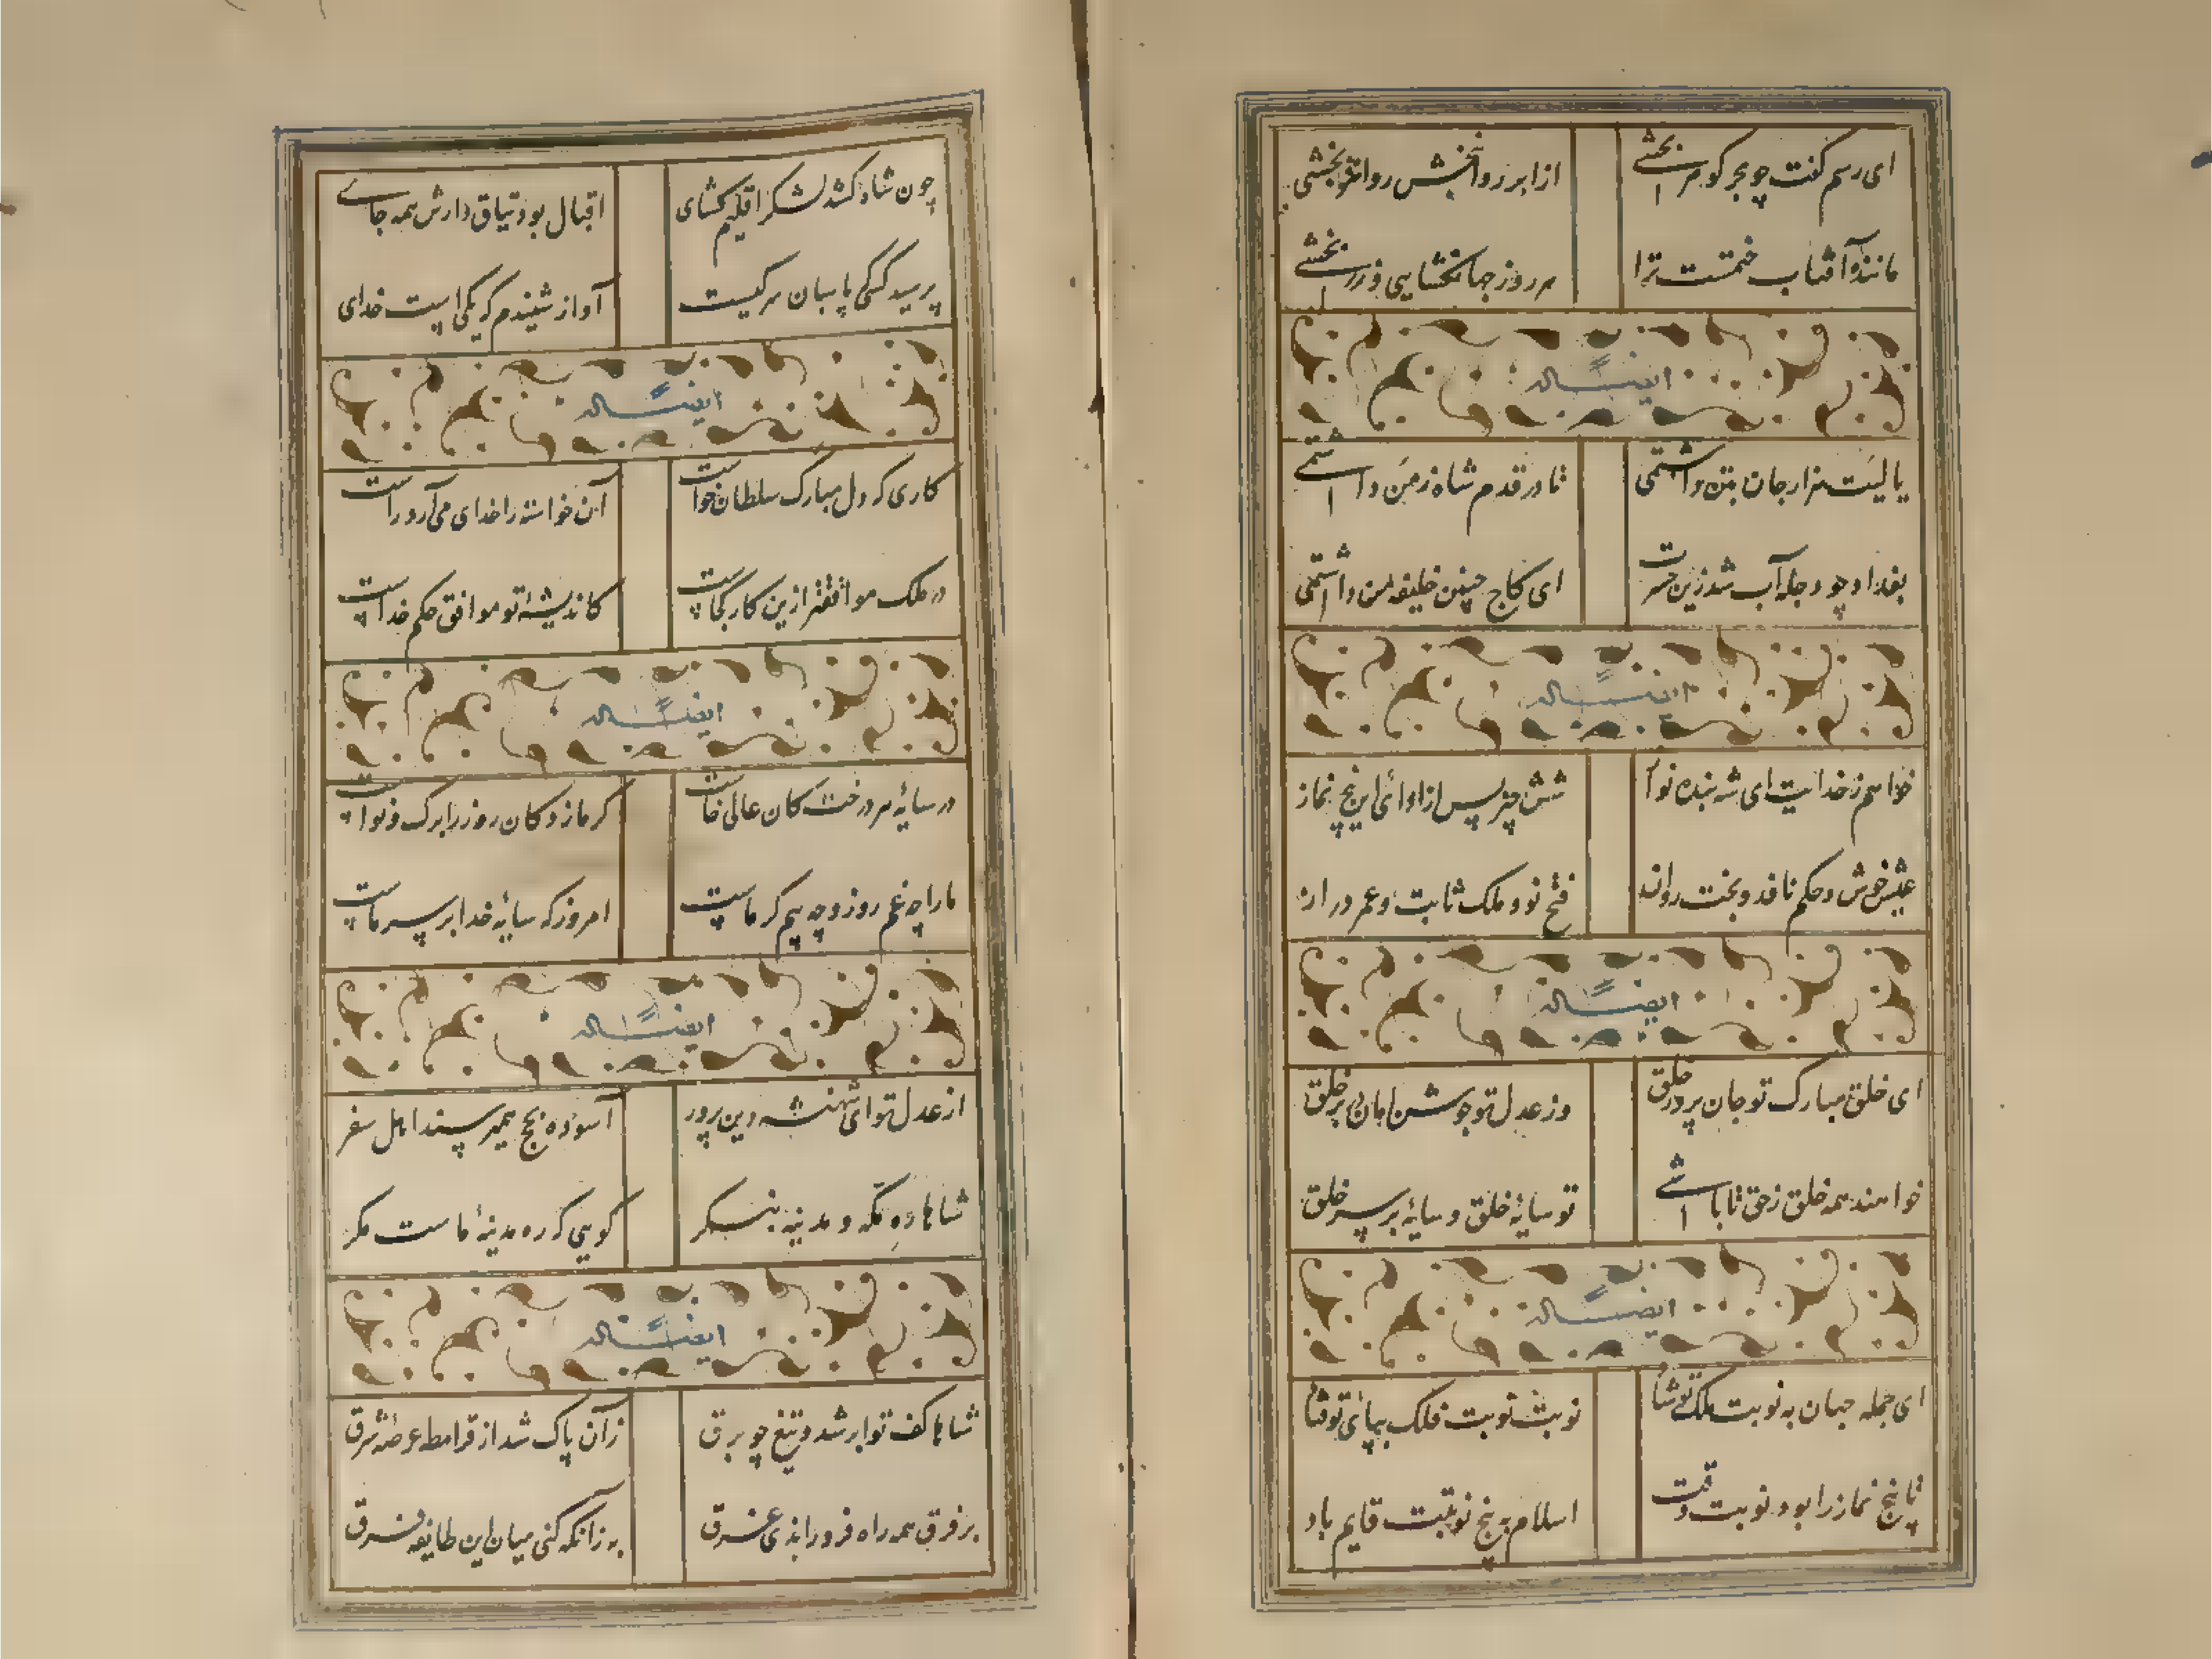 ای رسم کفت چو بحر کوهر بخشی
از ابر روانبخش روانتر بخشی
ماننده آفتاب ختمست ترا
هر روز جهانبخشایی و زر بخشی
ایضاً له
یا لیت هزار جان بتن داشتمی
تا در قدم شاه زمن داشتمی
بغداد چو دجله آب شد زین حسرت
ای کاج چنین خلیفه من داشتمی
ایضاً له
خواهم ز خدایت ای شه بنده نواز
شش چیز پس از ادائی این پنج نماز
عیش خوش و حکم نافد و بخت روان
فتح نو و ملک ثابت و عمر دراز
ایضاً له
ای خلق مبارک تو جان پرور خلق
وز عدل تو جوشن امان بر خلق
خواهند همه خلق ز حق تا باشی
تو سایهٔ خلق و سایهٔ بر سر خلق
ایضاً له
ای جمله جهان به نوبت ملک تو شاد
نوبت نوبت فلک بپای تو فتاد
تا پنج نماز را بود نوبت وقت
اسلام به پنج نوبتت قایم باد
چون شاه کشد لشکر اقلیم کشای
اقبال بود یتاق دارش همه جای
پرسید کسی پاسبان هر کیست
آواز شنیدم که یکی است خدای
ایضاً له
کاری که دل مبارک سلطان خواست
آن خواسته را خدای می‌آرد راست
در ملک موافقتر ازین کار کجاست
کاندیشهٔ تو موافق حکم خداست
ایضاً له
در سایهٔ هر درخت کان عالی خاست
کرما زد کان روز را برک و نواست
ما را چه غم روز و چه بیم کرماست
امروز که سایهٔ خدا بر سر ماست
ایضاً له
از عدل تو ای شهنشه دین پرور
آسوده بحج همی رسند اهل سفر
شاها ره مکه و مدینه بنکر
کویی که ره مدینهٔ ماست مکر
ایضاً له
شاها کف تو ابر شد و تیغ چو برق
زآن پاک شد از قرامطه عرصهٔ شرق
بر فرق همه راه فرو رانده‌ی غرق
به زانکه کنی میان این طایفه فرق